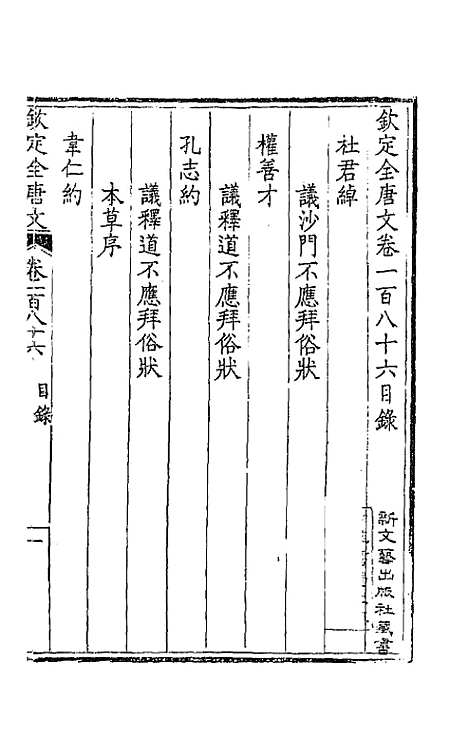 欽定全唐文卷一百八十六目錄
新文藝出版社藏書
杜君綽
議沙門不應拜俗狀
權善才
議釋道不應拜俗狀
孔志約
議釋道不應拜俗狀
本草序
韋仁約
欽定全唐文
卷一百八十六
目錄
一